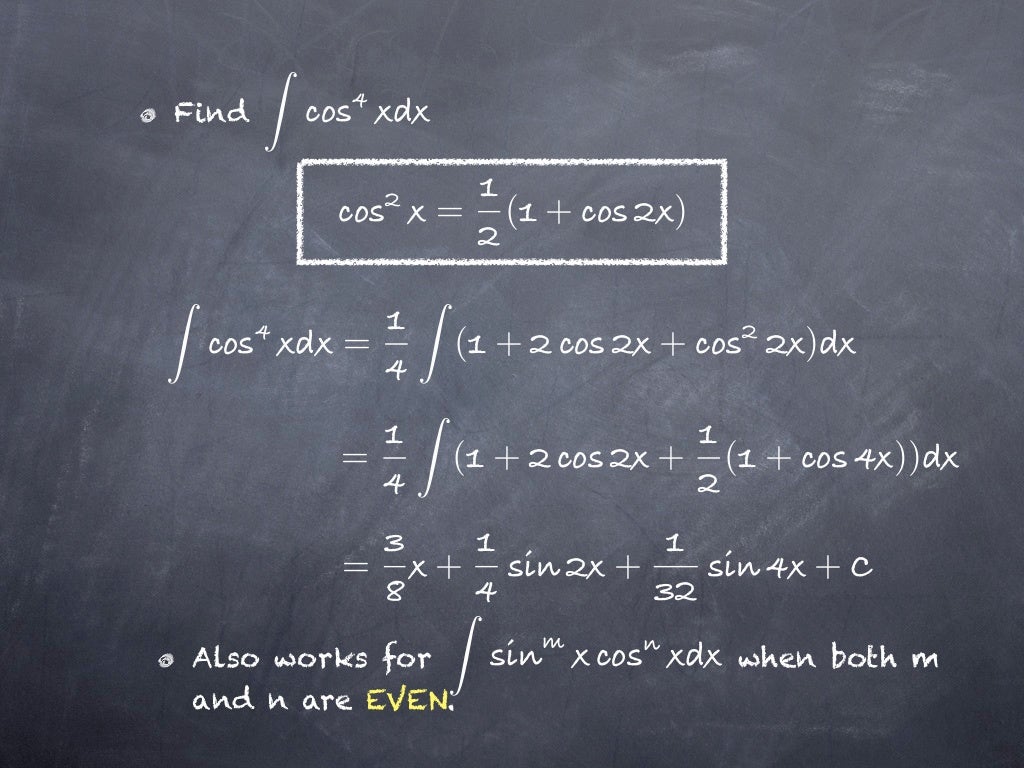 Find ∫ cos⁴ xdx
cos² x = 1/2 (1 + cos 2x)
∫ cos⁴ xdx = 1/4 ∫ (1 + 2 cos 2x + cos² 2x)dx
= 1/4 ∫ (1 + 2 cos 2x + 1/2 (1 + cos 4x))dx
= 3/8 x + 1/4 sin 2x + 1/32 sin 4x + C
Also works for ∫ sinᵐ x cosⁿ xdx when both m
and n are EVEN.